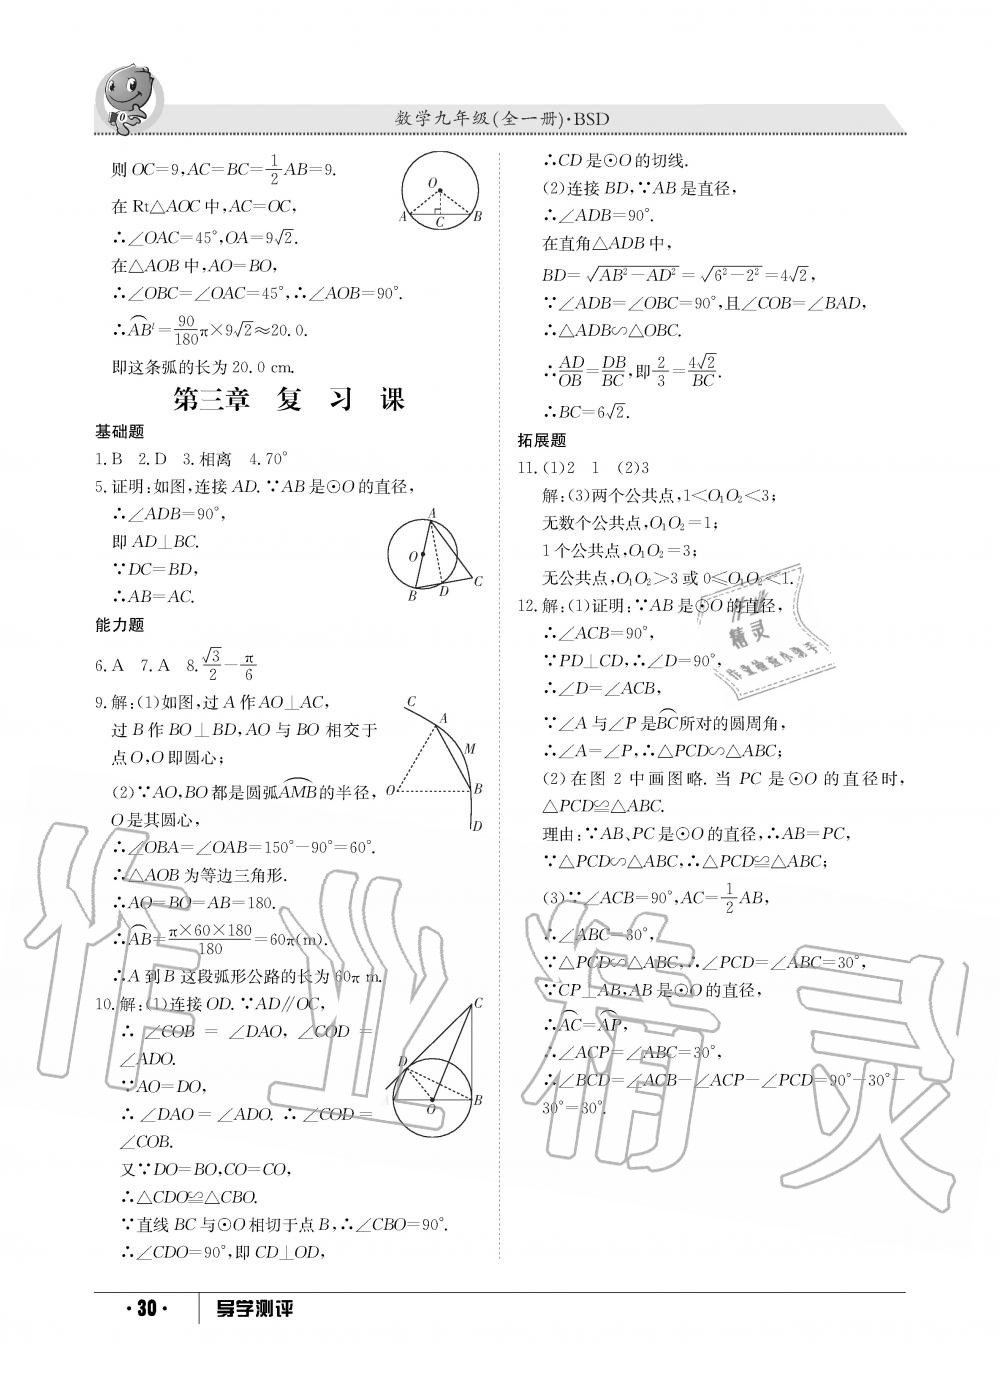 数学九年级(全一册)·BSD
则OC=9,AC=BC=1/2AB=9.
在Rt△AOC中,AC=OC,
∴∠OAC=45°,OA=9√2.
在△AOB中,AO=BO,
∴∠OBC=∠OAC=45°,∴∠AOB=90°.
∴AB⌒l=90/180π×9√2≈20.0.
即这条弧的长为20.0 cm.
O
A
C
B
第三章 复 习 课
基础题
1.B 2.D 3.相离 4.70°
5.证明:如图,连接AD.∵AB是⊙O的直径,
∴∠ADB=90°,
即AD⊥BC.
∵DC=BD,
∴AB=AC.
A
O
C
B
D
能力题
6.A 7.A 8.√3/2-π/6
9.解:(1)如图,过A作AO⊥AC,
过B作BO⊥BD,AO与BO相交于
点O,O即圆心;
(2)∵AO,BO都是圆弧AMB⌒的半径,
O是其圆心,
∴∠OBA=∠OAB=150°-90°=60°.
∴△AOB为等边三角形.
∴AO=BO=AB=180.
∴AB⌒=π×60×180/180=60π(m).
∴A到B这段弧形公路的长为60π m.
C
A
M
O
B
D
10.解:(1)连接OD.∵AD∥OC,
∴∠COB=∠DAO,∠COD=
∠ADO.
∵AO=DO,
∴∠DAO=∠ADO.∴∠COD=
∠COB.
又∵DO=BO,CO=CO,
∴△CDO≌△CBO.
∵直线BC与⊙O相切于点B,∴∠CBO=90°.
∴∠CDO=90°,即CD⊥OD,
C
D
A
O
B
∴CD是⊙O的切线.
(2)连接BD,∵AB是直径,
∴∠ADB=90°.
在直角△ADB中,
BD=√(AB²-AD²)=√(6²-2²)=4√2,
∵∠ADB=∠OBC=90°,且∠COB=∠BAD,
∴△ADB∽△OBC.
∴AD/OB=DB/BC,即2/3=4√2/BC.
∴BC=6√2.
拓展题
11.(1)2 1 (2)3
解:(3)两个公共点,1<O₁O₂<3;
无数个公共点,O₁O₂=1;
1个公共点,O₁O₂=3;
无公共点,O₁O₂>3或0≤O₁O₂<1.
12.解:(1)证明:∵AB是⊙O的直径,
∴∠ACB=90°,
∵PD⊥CD,∴∠D=90°,
∴∠D=∠ACB,
∵∠A与∠P是BC⌒所对的圆周角,
∴∠A=∠P,∴△PCD∽△ABC;
(2)在图2中画图略.当PC是⊙O的直径时,
△PCD≌△ABC.
理由:∵AB、PC是⊙O的直径,∴AB=PC,
∵△PCD∽△ABC,∴△PCD≌△ABC;
(3)∵∠ACB=90°,AC=1/2AB,
∴∠ABC=30°,
∵△PCD∽△ABC,∴∠PCD=∠ABC=30°,
∵CP⊥AB,AB是⊙O的直径,
∴AC⌒=AP⌒,
∴∠ACP=∠ABC=30°,
∴∠BCD=∠ACB-∠ACP-∠PCD=90°-30°-
30°=30°.
作业
精灵
作业检查小助手
作业精灵
·30·
导学测评